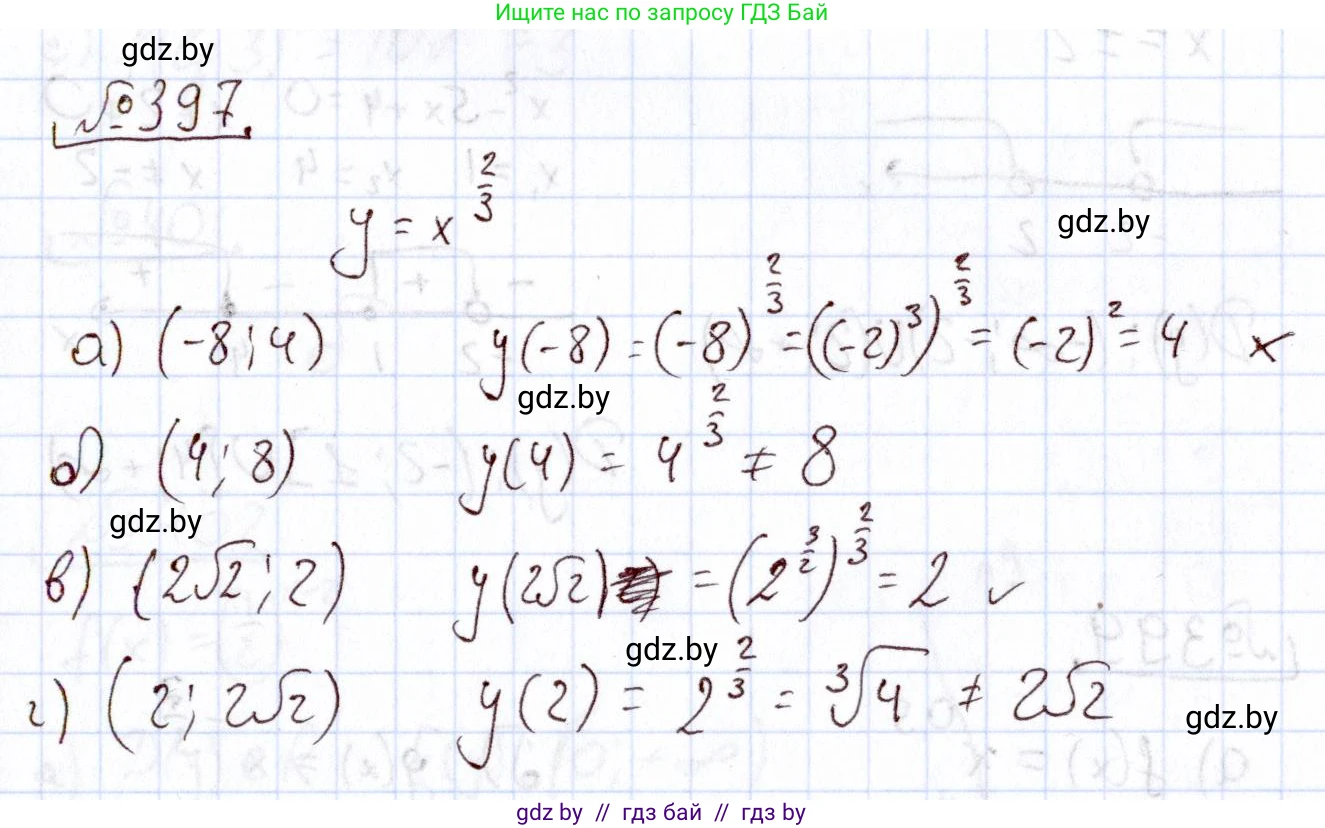 Ищите нас по запросу ГДЗ Бай
gdz.by
№397
y = x^{2/3}
gdz.by
а) (-8; 4) y(-8) = (-8)^{2/3} = ((-2)^3)^{2/3} = (-2)^2 = 4 ×
gdz.by
б) (4; 8) y(4) = 4^{2/3} ≠ 8
gdz.by
в) (2√2; 2) y(2√2) = (2^{3/2})^{2/3} = 2 ✓
gdz.by
г) (2; 2√2) y(2) = 2^{2/3} = ∛4 ≠ 2√2
gdz.by
gdz by // гдз бай // gdz by